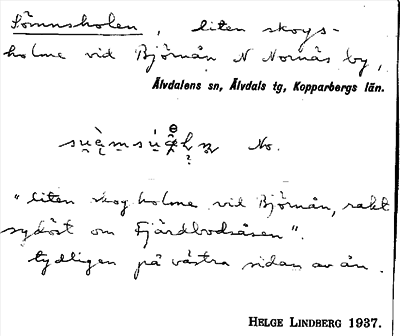 Sömnsholen, liten skogs-
holme vid Björnån N Nornäs by,
Älvdalens sn, Älvdals tg, Kopparbergs län.
No.
"liten skogholme vid Björnån, rakt
sydöst om Fjärdbodsåsen".
tydligen på västra sidan av ån.
HELGE LINDBERG 1937.